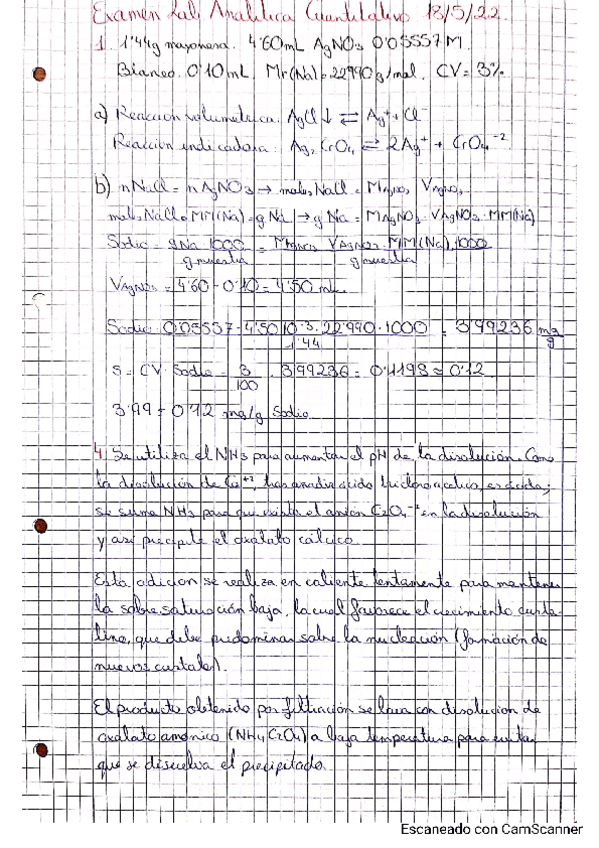 Examen Lab Analítica Cuantitativo 18/5/22.
1. 1'44g mayonesa. 4'60mL AgNO3 0'05557 M.
Blanco. 0'10mL. Mr(Na)=22'990g/mol. CV=3%
a) Reacción volumétrica: AgCl ↓ ⇄ Ag⁺ + Cl⁻
Reacción indicadora: Ag2CrO4 ⇄ 2Ag⁺ + CrO4⁻²
b) nNaCl = nAgNO3 → moles NaCl = MAgNO3 · VAgNO3
moles NaCl · MM(Na) = g Na → g Na = MAgNO3 · VAgNO3 · MM(Na)
Sodio = gNa · 1000 / g muestra = MAgNO3 · VAgNO3 · MM(Na) · 1000 / g muestra
VAgNO3 = 4'60 - 0'10 = 4'50 mL.
Sodio: 0'05557 · 4'50 · 10⁻³ · 22'990 · 1000 / 1'44 = 3'99236 mg/g
s = CV · Sodio = 3/100 · 3'99236 = 0'1198 ≈ 0'12
3'99 ± 0'12 mg/g Sodio
4. Se utiliza el NH3 para aumentar el pH de la disolución. Como
la disolución de Ca⁺², tras añadir ácido, es ácida;
se suma NH3 para que exista el anión C2O4⁻² en la disolución
y así precipite el oxalato cálcico.
Esta adición se realiza en caliente lentamente para mantener
la sobresaturación baja, la cual favorece el crecimiento crista-
lino, que debe predominar sobre la nucleación (formación de
nuevos cristales).
El producto obtenido por filtración se lava con disolución de
oxalato amónico (NH4C2O4) a baja temperatura para evitar
que se disuelva el precipitado.
Escaneado con CamScanner